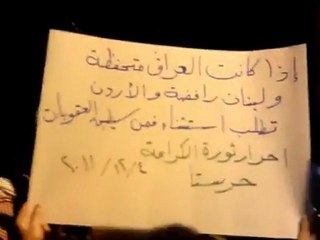 إذا كانت العراق متحفظة
ولبنان رافضة والأردن
تطلب استثناء فمن سيطبق العقوبات
احرار ثورة الكرامة
حرستا ٢٠١١/١٢/٤